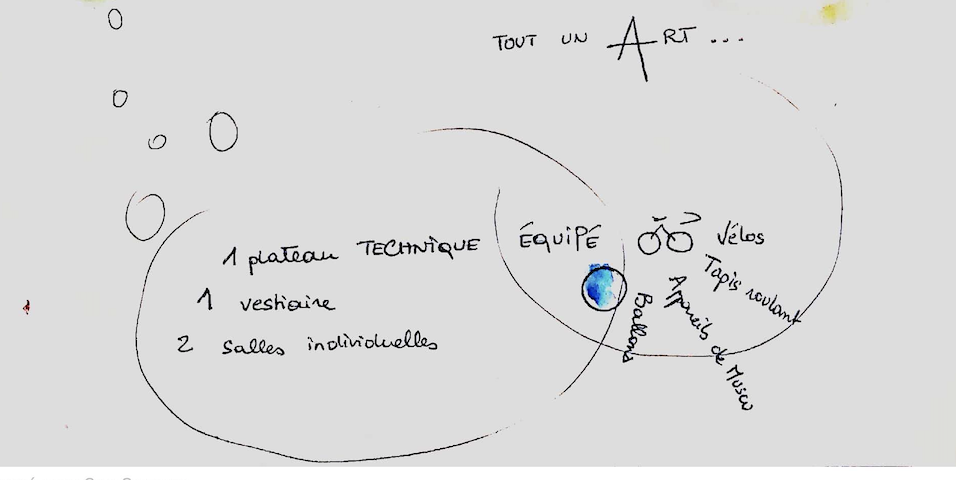 TOUT UN ART...
1 plateau TECHNIQUE ÉQUIPÉ
1 vestiaire
2 salles individuelles
Vélos
Tapis roulant
Appareils de Muscu
Ballons